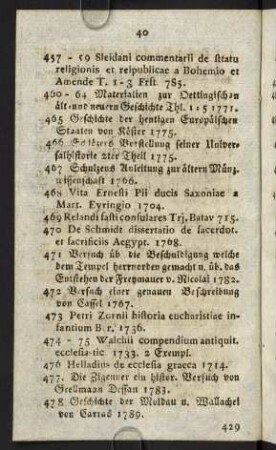 40
457 - 59 Sleidani commentarii de sttatu
religionis et reipublicae a Bohemio et
Amende T. 1 - 3 Frft. 785.
460 - 64 Materialien zur Oettingischen
ält. und neuern Geschichte Thl. 1 - 5 1771.
465 Geschichte der heutigen Europäischen
Staaten von Köster 1775.
466 Schlözers Vorstellung seiner Univer-
salhistorie 2ter Theil 1775.
467 Schulzens Anleitung zur ältern Münz-
wissenschaft 1766.
468 Vita Ernesti Pii ducis Saxoniae a
Mart. Eyringio 1704.
469 Relandi fasti consulares Trj. Batav 715.
470 De Schmidt dissertatio de sacerdot.
et sacrificiis Aegypt. 1768.
471 Versuch üb die Beschuldigung welche
dem Tempelherrnorden gemacht u. üb. das
Entstehen der Freymauer v. Nicolai 1782.
472 Versuch einer genauen Beschreibung
von Cassel 1767.
473 Petri Zornii historia eucharistiae in-
fantium B r. 1736.
474 - 75 Walchii compendium antiquit.
ecclesiastic 1733. 2 Exempl.
476 Helladius de ecclesia graeca 1714.
477. Die Zigeuner ein histor. Versuch von
Grellmann Dessau 1783.
478 Geschichte der Moldau u. Wallachei
von Carra 1789.
429